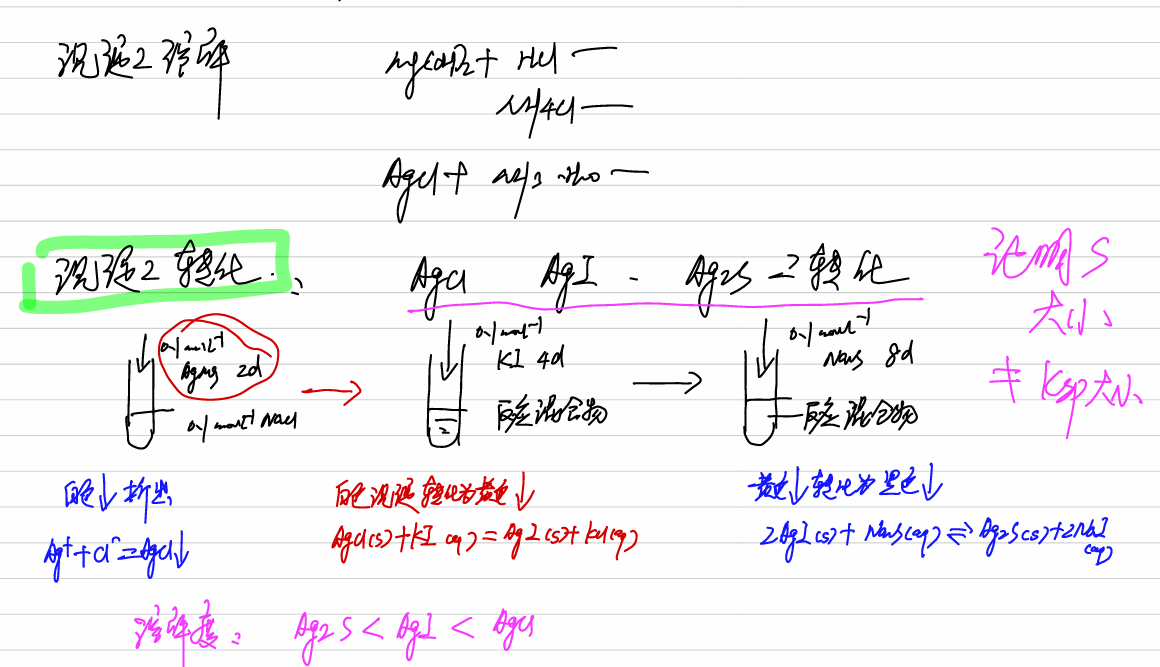 沉淀之溶解
Mg(OH)2 + HCl —
NH4Cl —
AgCl + NH3·H2O —
沉淀之转化:
AgCl AgI - Ag2S 之转化
证明S
大小
≠ Ksp大小
0.1 mol·L⁻¹
AgNO3 2d
0.1 mol·L⁻¹ NaCl
0.1 mol·L⁻¹
KI 4d
反应混合物
0.1 mol·L⁻¹
Na2S 8d
反应混合物
白色↓析出
Ag⁺ + Cl⁻ = AgCl↓
白色沉淀转化为黄色↓
AgCl(s) + KI(aq) = AgI(s) + KCl(aq)
黄色↓转化为黑色↓
2AgI(s) + Na2S(aq) ⇌ Ag2S(s) + 2NaI(aq)
溶解度: Ag2S < AgI < AgCl